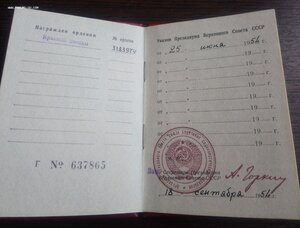 Награжден орденом
№ ордена
Красной Звезды
Г № 637865
Указом Президиума Верховного Совета СССР
от 25 июня 1954 г.
от 19 г.
от 19 г.
от 19 г.
от 19 г.
от 19 г.
от 19 г.
от 19 г.
Секретарь Президиума
Верховного Совета СССР
А. Горкин
18 сентября 1954 г.